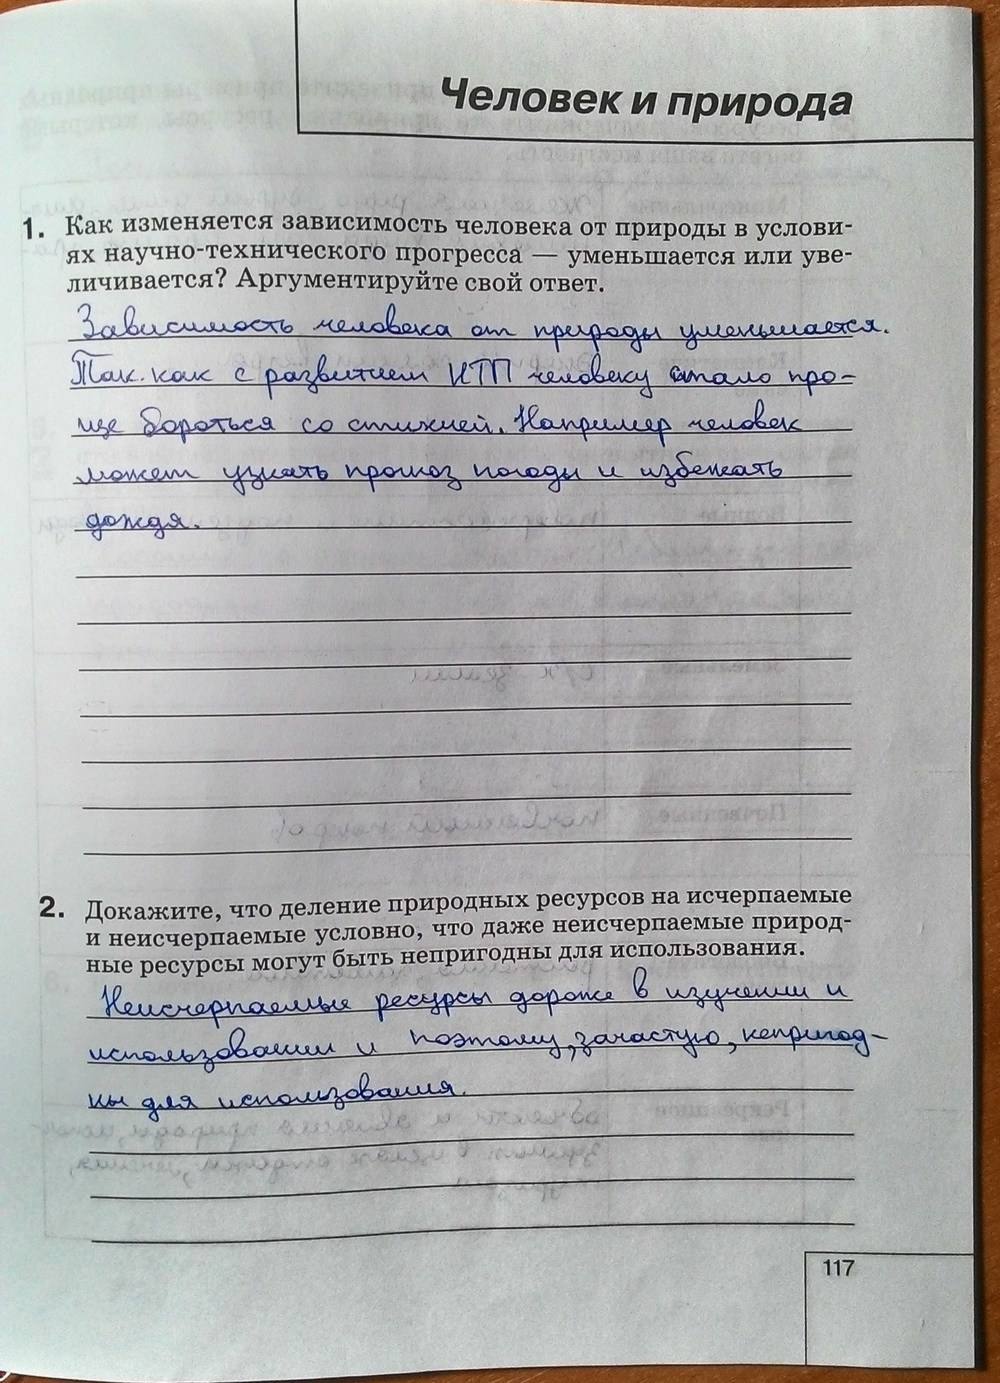 Человек и природа
1. Как изменяется зависимость человека от природы в услови-
ях научно-технического прогресса — уменьшается или уве-
личивается? Аргументируйте свой ответ.
Зависимость человека от природы уменьшается.
Так как с развитием НТП человеку стало про-
ще бороться со стихией. Например человек
может узнать прогноз погоды и избежать
дождя.
2. Докажите, что деление природных ресурсов на исчерпаемые
и неисчерпаемые условно, что даже неисчерпаемые природ-
ные ресурсы могут быть непригодны для использования.
Неисчерпаемые ресурсы дороже в изучении и
использовании и поэтому, зачастую, непригод-
ны для использования.
117